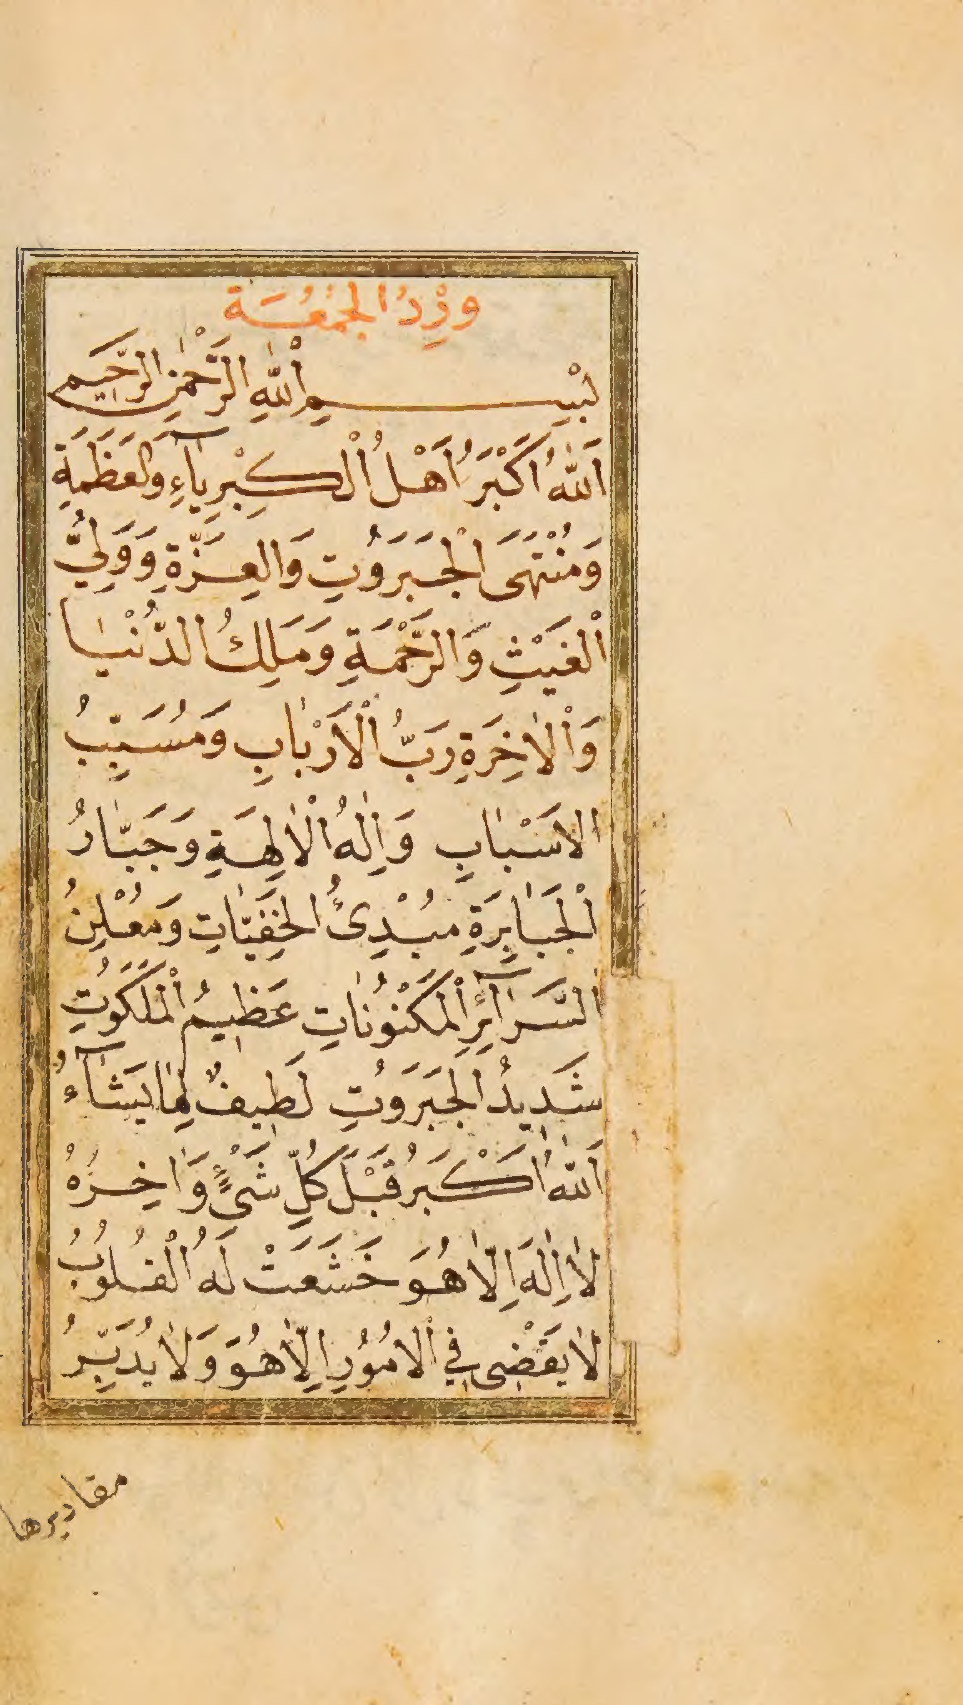 وِرْدُ الْجُمُعَة
بِسْمِ اللّٰهِ الرَّحْمٰنِ الرَّحِيمِ
اَللّٰهُ اَكْبَرُ اَهْلُ الْكِبْرِيَآءِ وَالْعَظَمَةِ
وَمُنْتَهَى الْجَبَرُوتِ وَالْعِزَّةِ وَوَلِيُّ
الْغَيْثِ وَالرَّحْمَةِ وَمَلِكُ الدُّنْيَا
وَالْاٰخِرَةِ رَبُّ الْاَرْبَابِ وَمُسَبِّبُ
الْاَسْبَابِ وَاِلٰهُ الْاٰلِهَةِ وَجَبَّارُ
الْجَبَابِرَةِ مُبْدِئُ الْخَفِيَّاتِ وَمُعْلِنُ
السَّرَآئِرِ الْمَكْنُونَاتِ عَظِيمُ الْمَلَكُوتِ
شَدِيدُ الْجَبَرُوتِ لَطِيفٌ لِمَا يَشَآءُ
اَللّٰهُ اَكْبَرُ قَبْلَ كُلِّ شَىْءٍ وَاٰخِرُهُ
لَا اِلٰهَ اِلَّا هُوَ خَشَعَتْ لَهُ الْقُلُوبُ
لَا يَقْضِى فِي الْاُمُورِ اِلَّا هُوَ وَلَا يُدَبِّرُ
مقاديرها